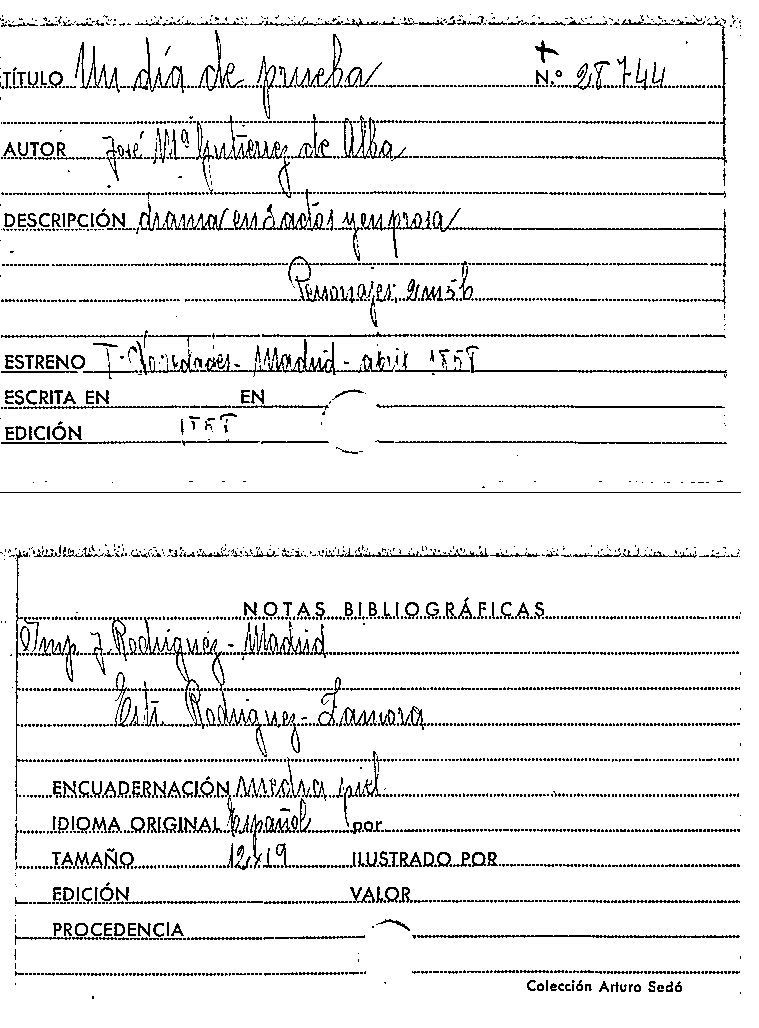 TÍTULO Un día de prueba
+
N.º 28744
AUTOR José Mª Gutiérrez de Alba
DESCRIPCIÓN drama en 3 actos y en prosa
Personajes; 2m5h
ESTRENO T. Novedades - Madrid - abril 1858
ESCRITA EN EN
EDICIÓN 1858
NOTAS BIBLIOGRÁFICAS
Imp. J. Rodríguez - Madrid
Estr. Rodríguez - Zamora
ENCUADERNACIÓN media piel
IDIOMA ORIGINAL Español por
TAMAÑO 12x19 ILUSTRADO POR
EDICIÓN VALOR
PROCEDENCIA
Colección Arturo Sedó